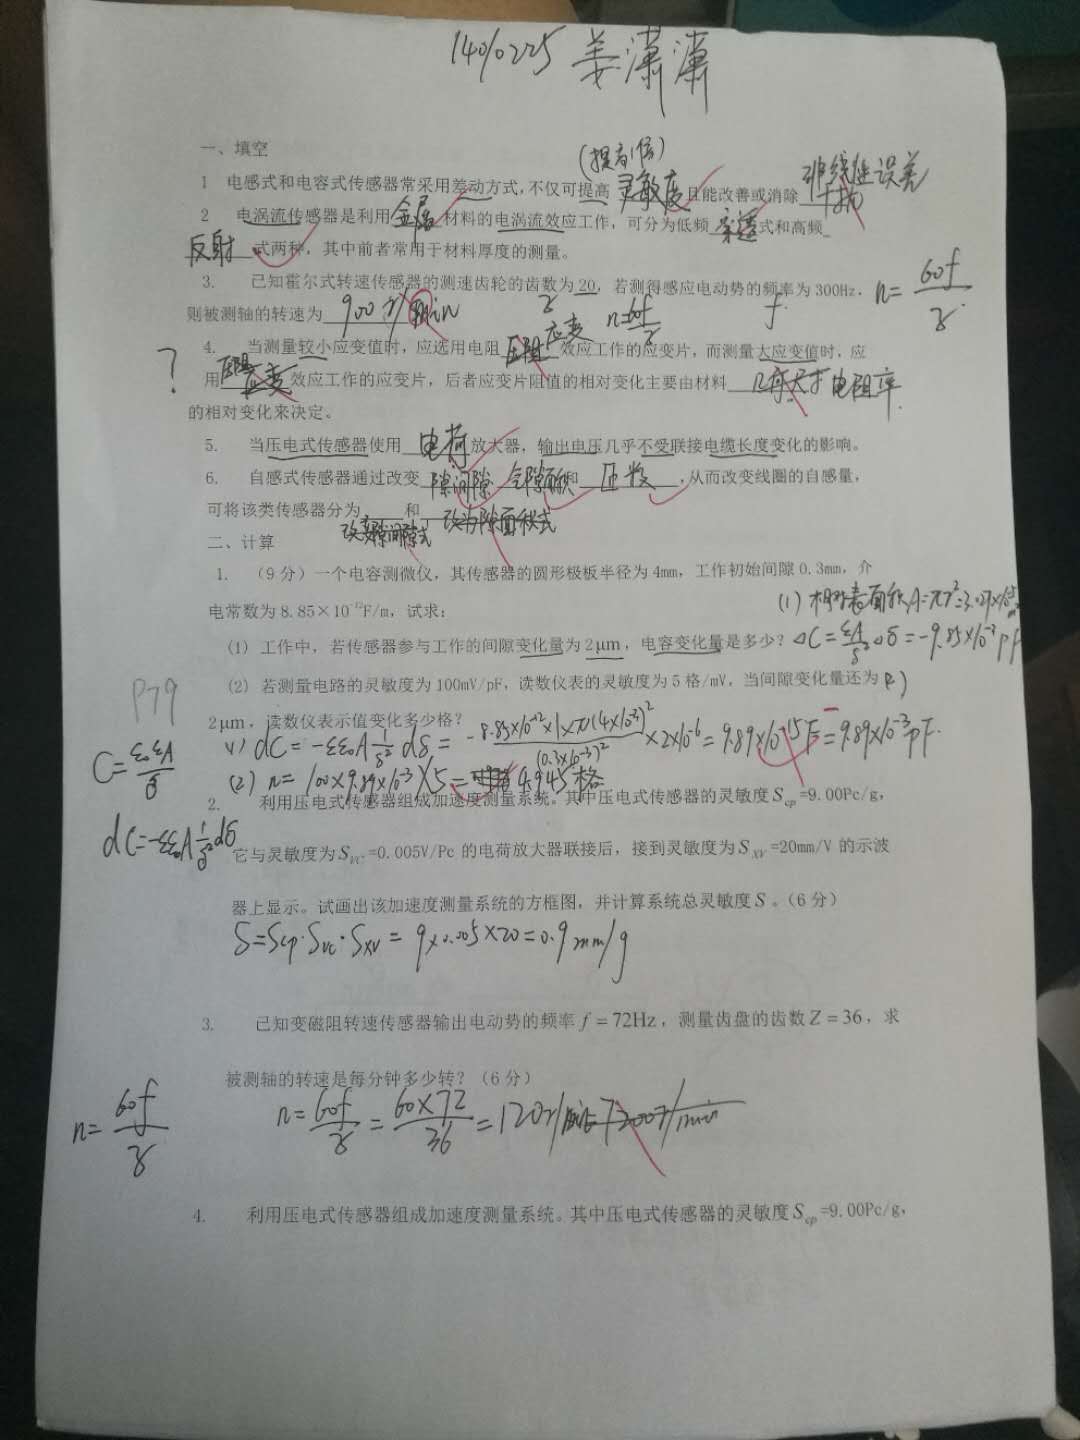 14010225 姜潇潇
一、填空
(提高1倍)
1 电感式和电容式传感器常采用差动方式，不仅可提高 灵敏度 且能改善或消除 非线性误差
2 电涡流传感器是利用 金属 材料的电涡流效应工作，可分为低频 穿透 式和高频
反射 式两种，其中前者常用于材料厚度的测量。
3. 已知霍尔式转速传感器的测速齿轮的齿数为20，若测得感应电动势的频率为300Hz，
n=60f/z
则被测轴的转速为 900r/min z n=60f/z f
4. 当测量较小应变值时，应选用电阻 压阻 应变 效应工作的应变片，而测量大应变值时，应
?
用 压阻 应变 效应工作的应变片，后者应变片阻值的相对变化主要由材料 几何尺寸 电阻率
的相对变化来决定。
5. 当压电式传感器使用 电荷 放大器，输出电压几乎不受联接电缆长度变化的影响。
6. 自感式传感器通过改变 隙间隙 气隙面积 和 匝数 ，从而改变线圈的自感量，
可将该类传感器分为 和
改变隙间隙式 改为隙面积式
二、计算
1. （9分）一个电容测微仪，其传感器的圆形极板半径为4mm，工作初始间隙0.3mm，介
电常数为8.85×10⁻¹²F/m，试求：
(1) 工作中，若传感器参与工作的间隙变化量为2μm，电容变化量是多少？
ΔC=εA/δ² Δδ=-9.85×10⁻³pF
(2) 若测量电路的灵敏度为100mV/pF，读数仪表的灵敏度为5格/mV，当间隙变化量还为
P79
2μm，读数仪表示值变化多少格？
(1) dC=-εε₀A 1/δ² dδ = -8.85×10⁻¹²×1×π(4×10⁻³)²/(0.3×10⁻³)² ×2×10⁻⁶=9.89×10⁻¹⁵F=9.89×10⁻³pF.
C=ε₀εA/δ
(2) n=100×9.89×10⁻³×5= 4.945格
2. 利用压电式传感器组成加速度测量系统。其中压电式传感器的灵敏度S_cp=9.00Pc/g，
dC=-εε₀A 1/δ² dδ
它与灵敏度为S_VC=0.005V/Pc 的电荷放大器联接后，接到灵敏度为S_XV=20mm/V 的示波
器上显示。试画出该加速度测量系统的方框图，并计算系统总灵敏度S。（6分）
S=Scp·Svc·Sxv=9×0.005×20=0.9mm/g
3. 已知变磁阻转速传感器输出电动势的频率f=72Hz，测量齿盘的齿数Z=36，求
被测轴的转速是每分钟多少转？（6分）
n=60f/z
n=60f/z=60×72/36=120r/min
4. 利用压电式传感器组成加速度测量系统。其中压电式传感器的灵敏度S_cp=9.00Pc/g，